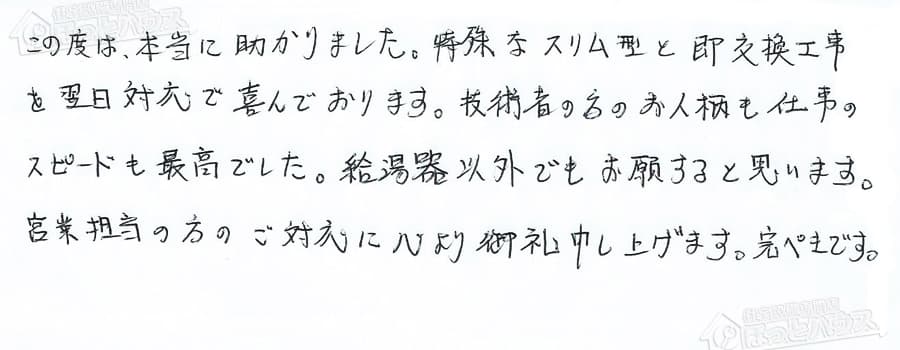 この度は、本当に助かりました。特殊なスリム型と即交換工事
を翌日対応で喜んでおります。技術者の方のお人柄も仕事の
スピードも最高でした。給湯器以外でもお願すると思います。
営業担当の方のご対応に心より御礼申し上げます。完ぺきです。
ほっとハウス